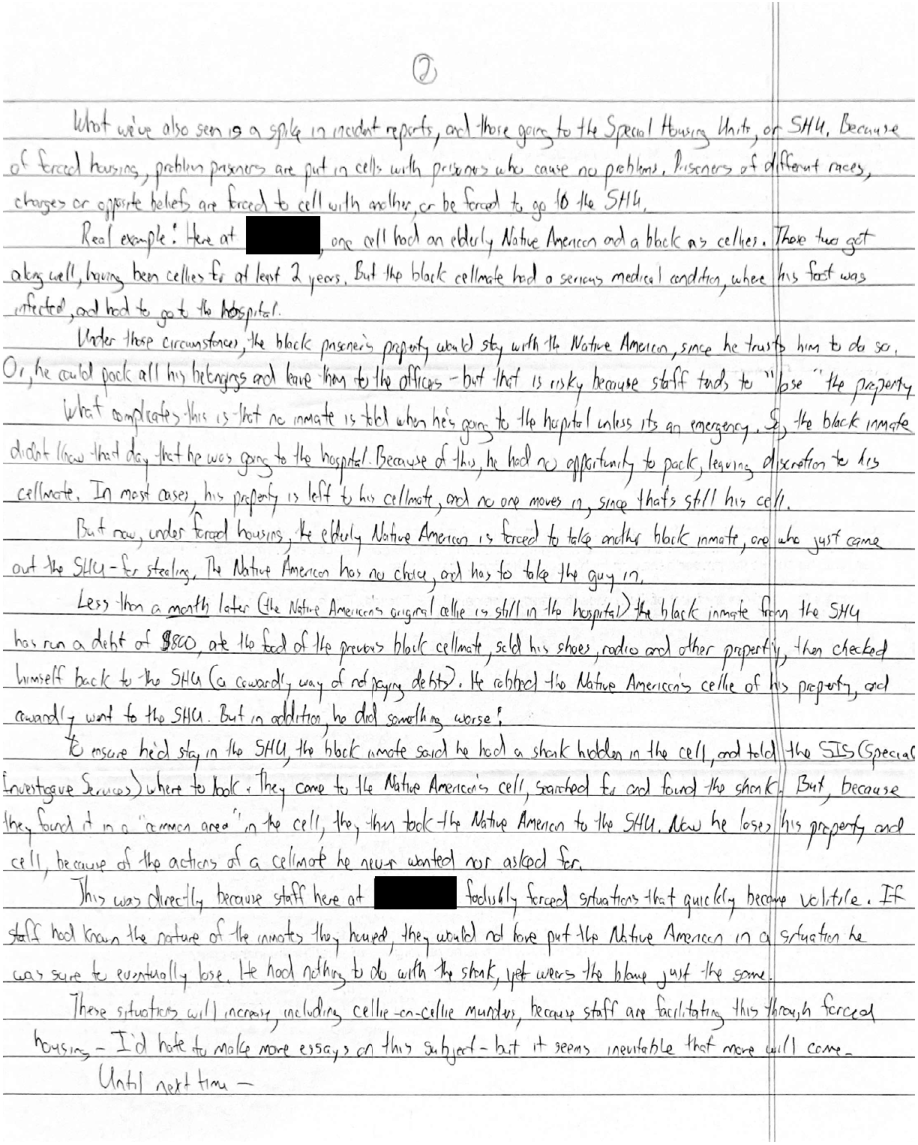 ②
What we've also seen is a spike in incident reports, and those going to the Special Housing Units, or SHU. Because
of forced housing, problem prisoners are put in cells with prisoners who cause no problems. Prisoners of different races,
charges or opposite beliefs are forced to cell with another, or be forced to go to the SHU.
Real example! Here at , one cell had an elderly Native American and a black as cellies. These two got
along well, having been cellies for at least 2 years. But the black cellmate had a serious medical condition, where his foot was
infected, and had to go to the hospital.
Under those circumstances, the black prisoner's property would stay with the Native American, since he trusts him to do so.
Or, he could pack all his belongings and leave them to the officers - but that is risky because staff tends to "lose" the property
What complicates this is that no inmate is told when he's going to the hospital unless its an emergency. So, the black inmate
didn't know that day that he was going to the hospital. Because of this, he had no opportunity to pack, leaving discretion to his
cellmate. In most cases, his property is left to his cellmate, and no one moves in, since thats still his cell.
But now, under forced housing, the elderly Native American is forced to take another black inmate, one who just came
out the SHU - for stealing. The Native American has no choice, and has to take the guy in.
Less than a month later (the Native American's original cellie is still in the hospital) the black inmate from the SHU
has run a debt of $800, ate the food of the previous black cellmate, sold his shoes, radio and other property, then checked
himself back to the SHU (a cowardly way of not paying debts). He robbed the Native American's cellie of his property, and
cowardly went to the SHU. But in addition, he did something worse!
To ensure he'd stay in the SHU, the black inmate said he had a shank hidden in the cell, and told the SIS (Special
Investigave Services) where to look. They came to the Native American's cell, searched for and found the shank. But, because
they found it in a "common area" in the cell, they then took the Native American to the SHU. Now he loses his property and
cell, because of the actions of a cellmate he never wanted nor asked for.
This was directly because staff here at foolishly forced situations that quickly become volitile. If
staff had known the nature of the inmates they housed, they would not have put the Native American in a situation he
was sure to eventually lose. He had nothing to do with the shank, yet wears the blame just the same.
These situations will increase, including cellie-on-cellie murders, because staff are facilitating this through forced
housing - I'd hate to make more essays on this subject - but it seems inevitable that more will come -
Until next time -